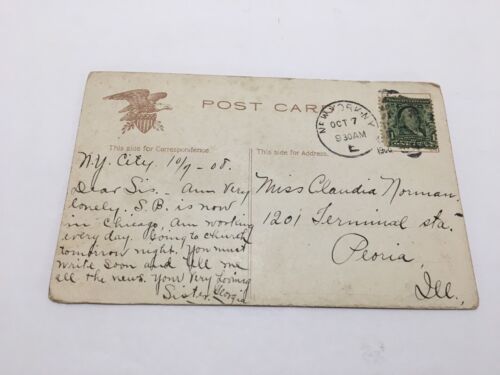 POST CARD
NEW YORK, N.Y.
OCT 7
930AM
This side for Correspondence.
This side for Address.
N.Y. City 10/7-08.
Dear Sis. - Am Very
lonely. S.B. is now
in Chicago, Am working
every day. Going to church
tomorrow night. You must
write, soon and tell me
all the news. Your Very Loving
Sister Georgia
Miss Claudia Norman
1201 Terminal sta.
Peoria,
Ill.,